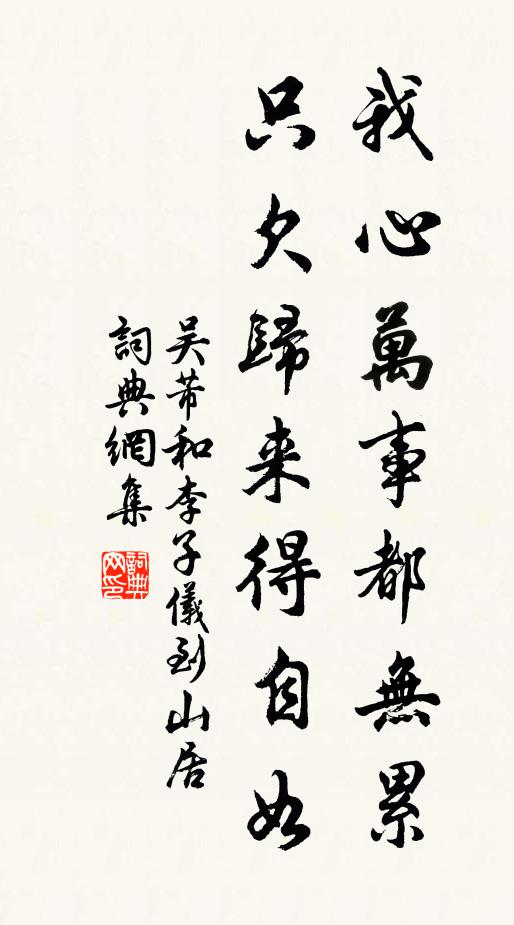 我心萬事都無累
只欠歸来得自如
吳芾和李子儀到山居
詞典網集
詞典網印